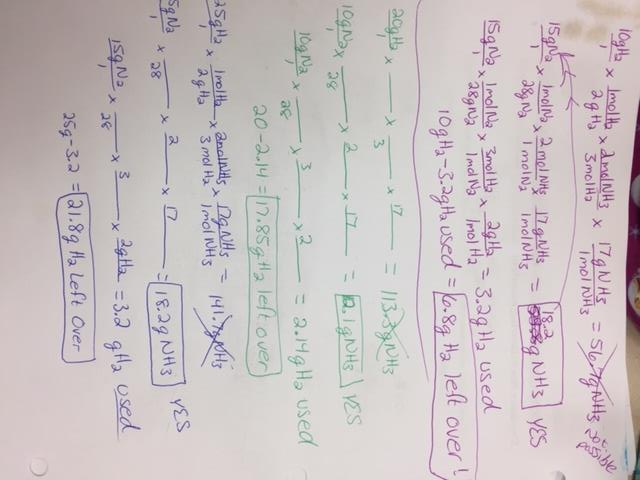 10gH2/1 x 1molH2/2gH2 x 2molNH3/3molH2 x 17gNH3/1molNH3 = 56.7gNH3
15gN2/1 x 1molN2/28gN2 x 2molNH3/1molN2 x 17gNH3/1molNH3 = 18.2 gNH3 YES
15gN2/1 x 1molN2/28gN2 x 3molH2/1molN2 x 2gH2/1molH2 = 3.2gH2 used
10gH2-3.2gH2 used = 6.8gH2 left over!
20gH2/1 x ___ x ___/3 x 17/___ = 113.3gNH3
10gN2/1 x ___/28 x 2/___ x 17/___ = 12.1gNH3 YES
10gN2/1 x ___/28 x 3/___ x 2/___ = 2.14gH2 used
20-2.14 = 17.85gH2 left over
25gH2/1 x 1molH2/2gH2 x 2molNH3/3molH2 x 17gNH3/1molNH3 = 141.7gNH3
15gN2/1 x ___/28 x 2/___ x 17/___ = 18.2gNH3 YES
15gN2/1 x ___/28 x 3/___ x 2gH2/___ = 3.2 gH2 used
25g-3.2 = 21.8gH2 Left Over